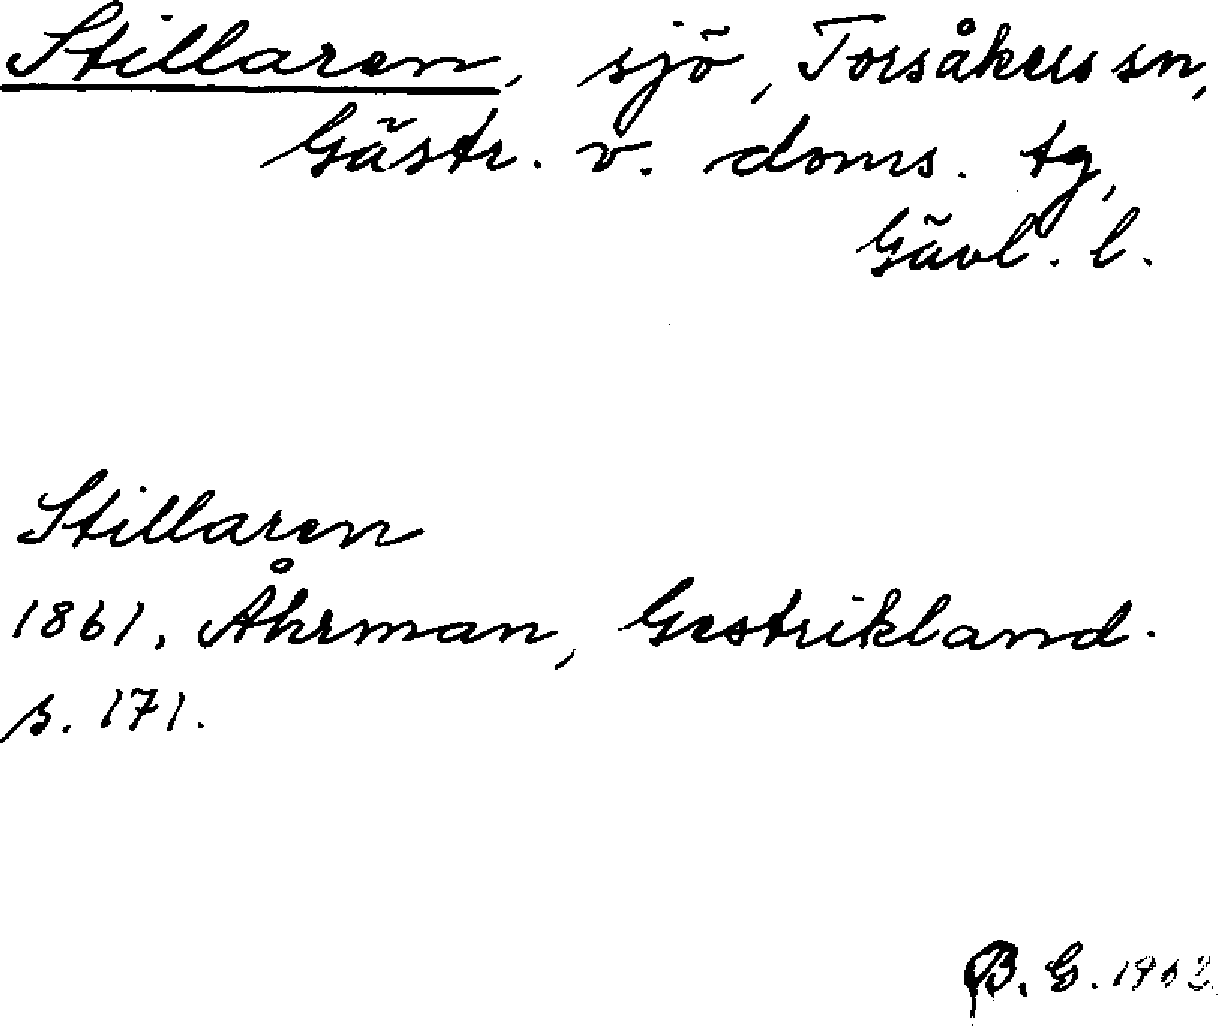 Stillaren, sjö, Torsåkers sn,
Gästr. v. doms. tg,
Gävl. l.
Stillaren
1861. Åhrman, Gestrikland.
s. 171.
B. G. 1902.